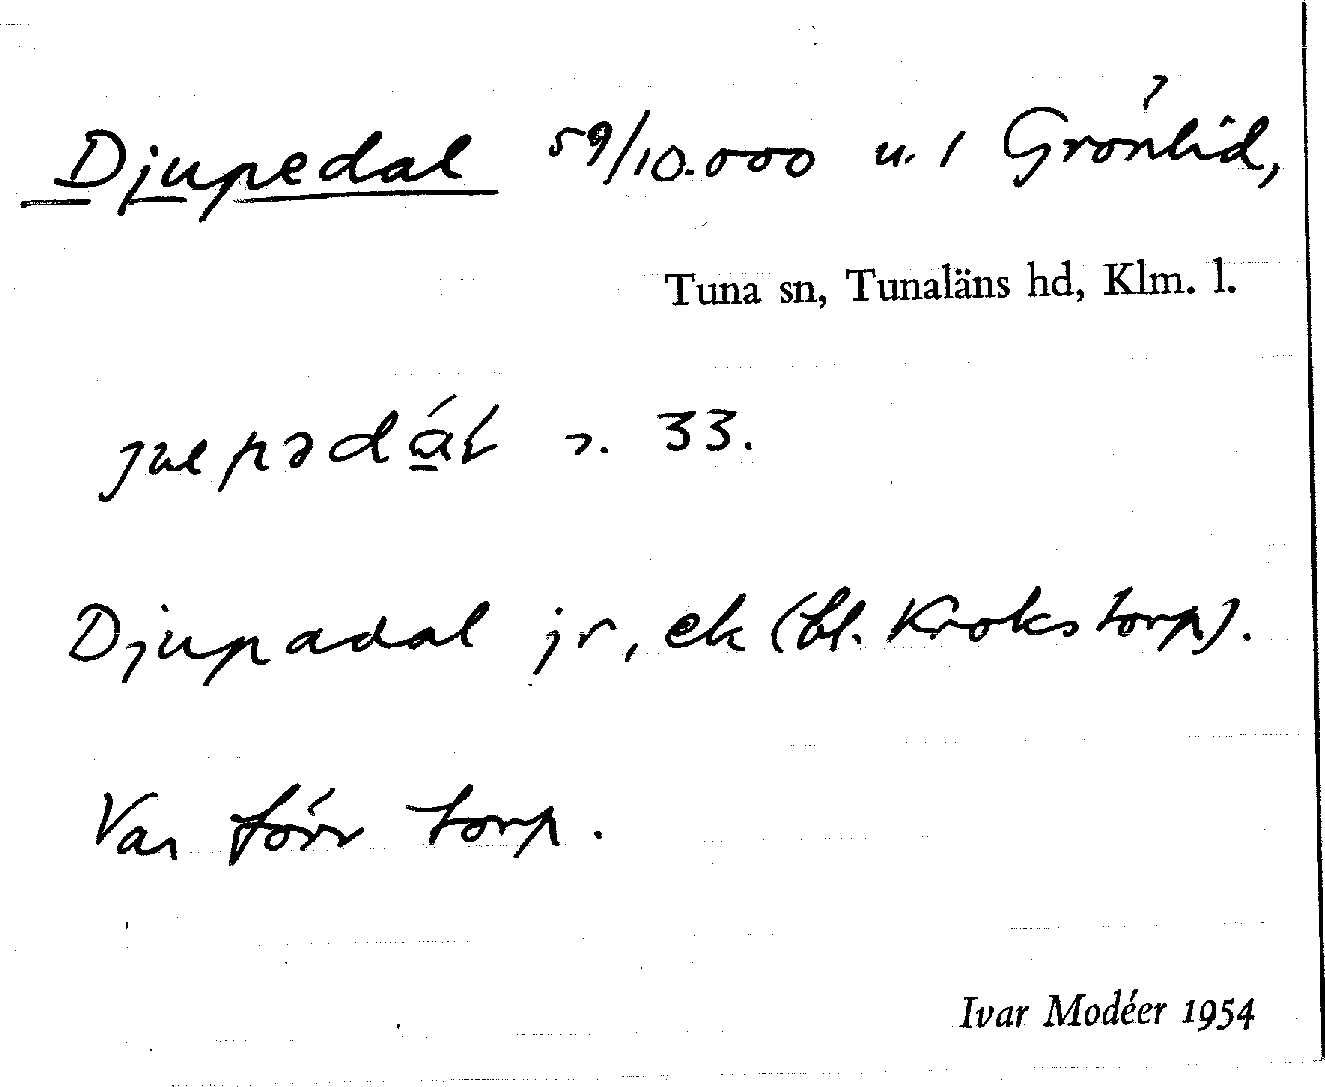 Djupedal 59/10.000 u. 1 Grönlid,
Tuna sn, Tunaläns hd, Klm. l.
33.
Djupadal jr, ek (bl. Krokstorp).
Var förr torp.
Ivar Modéer 1954